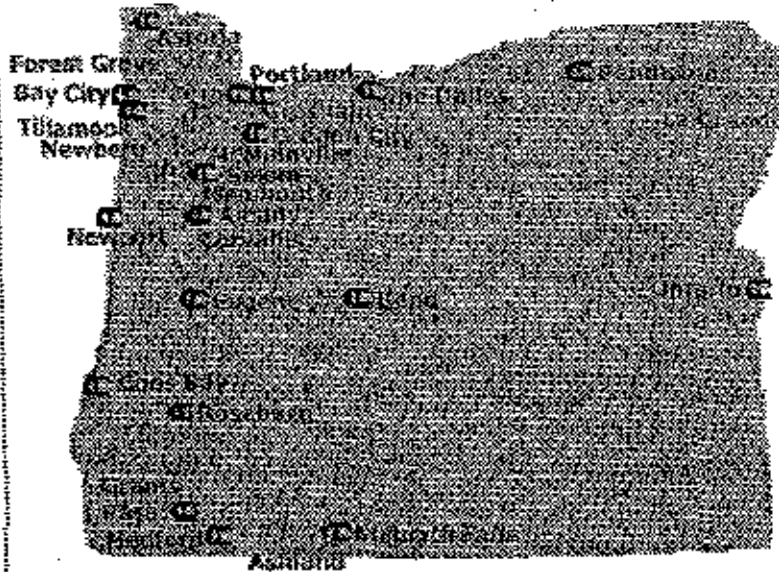 Astoria
Forest Grove
Portland
Pendleton
Bay City
The Dalles
La Grande
Tillamook
Oregon City
Newberg
McMinnville
Salem
Monmouth
Albany
Newport
Corvallis
Ontario
Eugene
Bend
Coos Bay
Roseburg
Grants
Pass
Medford
Klamath Falls
Ashland